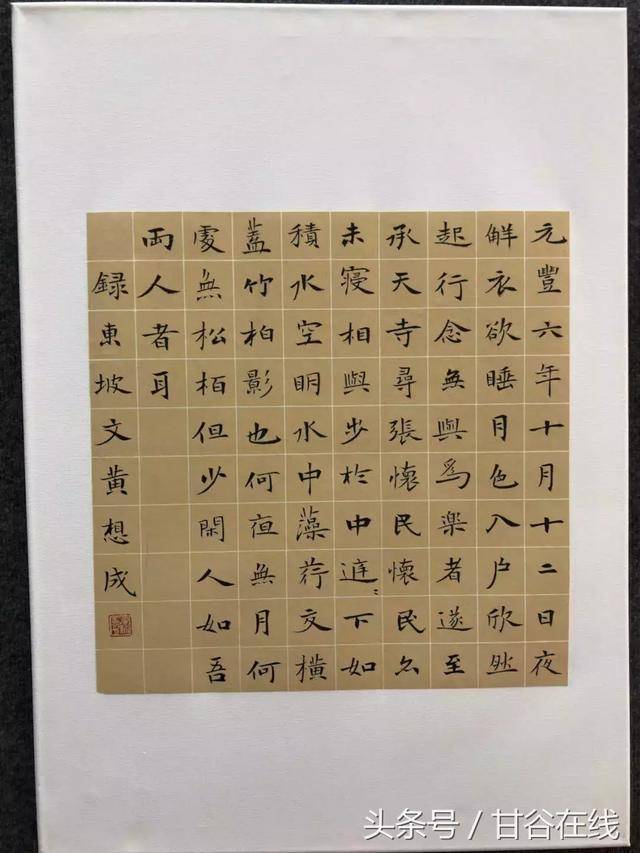 元豐六年十月十二日夜
解衣欲睡月色入户欣然
起行念無與爲樂者遂至
承天寺尋張懷民懷民亦
未寢相與步於中庭〻下如
積水空明水中藻荇交橫
蓋竹柏影也何夜無月何
處無松栢但少閑人如吾
兩人者耳
録東坡文黄想成
头条号 / 甘谷在线